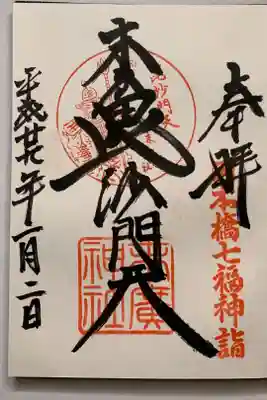 奉拝
日本橋七福神詣
毘沙門天
末廣毘沙門天
末廣神社
平成廿七年一月二日